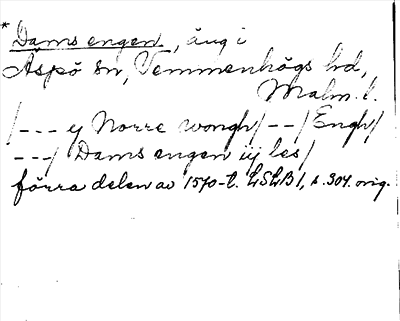 * Dams engen, äng i
Äspö sn, Vemmenhögs hd,
Malm. l.
/--- ej Norre wongh/--/Engh/
---/ Dams engen iij les/
förra delen av 1570-t. LSLB 1, s. 304. orig.